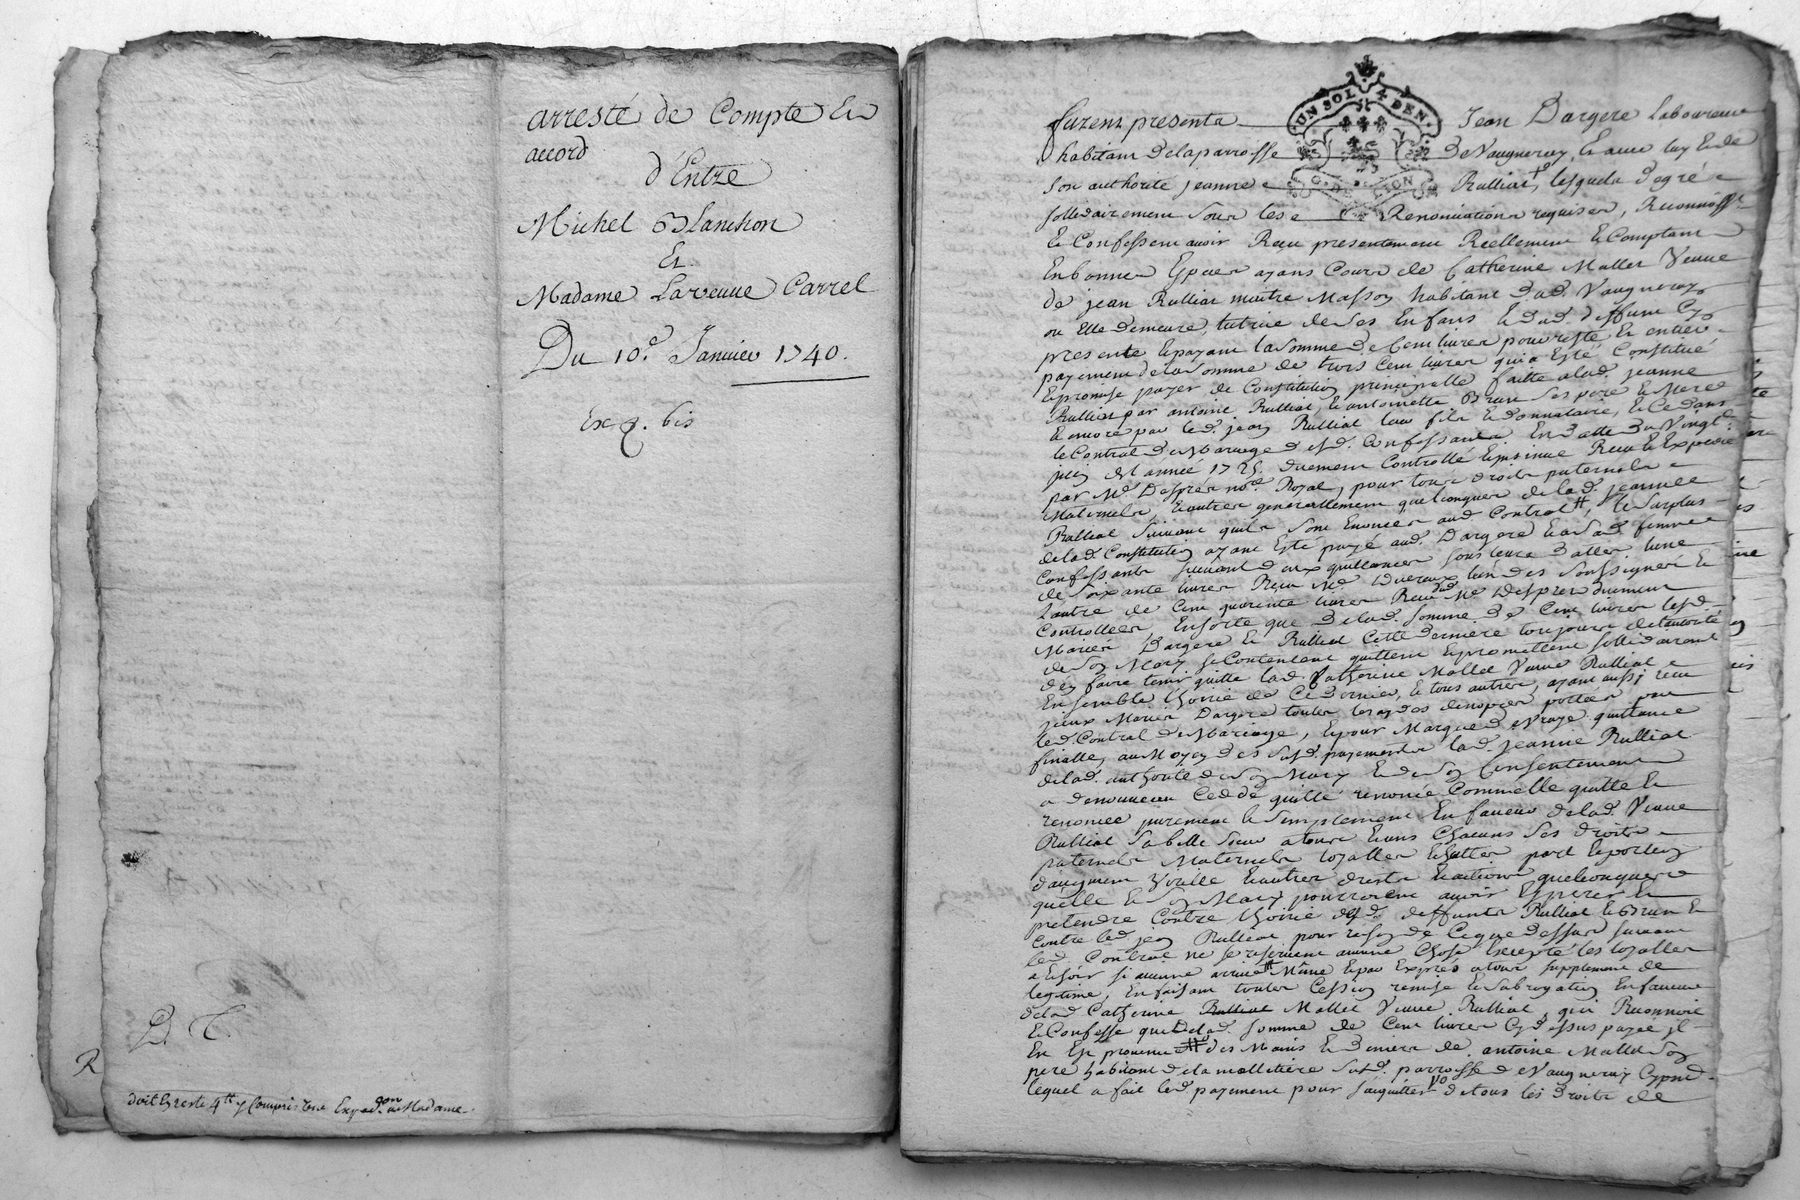 arresté de Compte Et
accord
d'Entre
Michel Blanchon
Et
Madame La veuve Carrel
Du 10.e Janvier 1740.
Ex q. bis
D. C.
R
doit Et reste 4tt y Compris Une Exped.on a Madame
UN SOL 4 DEN.
G. DE LION
furent presents Jean Dargere Laboureur
habitant de la parroisse de Vaugneray, Et avec luy Et de
Son authorité jeanne Rulliat, lesquels de gré
sollidairement sous les Renonciations requises, Reconnoiss.t
Et Confessent avoir Receu presentement Reellement Et Comptant
En bonnes Especes ayans Cours de Catherine Mallet Veuve
de jean Rulliat maitre Masson habitant dud. Vaugneray
ou Elle demeure, tutrice de Ses Enfans Et dud. deffunt Cy
presente Et payant la Somme de Cent livres pour reste Et entier
payement de la Somme de trois Cent livres qui a Esté Constitué
Et promise payer de Constitution principalle faitte a lad. jeanne
Rulliat par antoine Rulliat, Et antoinette Brun Ses pere Et Mere
Et encore par led. jean Rulliat leur fils Et donnataire, Et Ce dans
le Contrat de Mariage desd. Confessants En datte du Vingt
juin de l'année 1725. duement Controllé Et insinué Receu Et Expedié
par Me Desprès no.re Royal, pour tous droits paternels
Maternels, Et autres generallement quelconques de lad. jeanne
Rulliat Suivant qu'ils sont Enoncés aud. Contrat, le Surplus
de lad. Constitution ayant Esté payé aud. Dargere Et a Sad. femme
Confessants suivant deux quittances sous leurs dattes lune
de Soixante livres Receu Me Duereux lun des Soussignés Et
l'autre de Cent quarente livres Receu dud. Me Desprès duement
Controllées, En sorte que de lad. Somme de Cent livres lesd.
Mariés Dargere Et Rulliat Cette derniere toujours de l'autorité
de Son Mary se Contentent quittent Et promettent sollidairemt
d'en faire tenir quitte lad. Catherine Mallet Veuve Rulliat
Ensemble l'hoirie de Ce dernier, Et tous autres, ayant aussi receu
jceux Mariés Dargere toutes les
led. Contrat de Mariage, Et pour Marque de Vraye quittance
finalle, au Moyen des Susd. payements lad. jeanne Rulliat
de lad. authorité de Son Mary Et de Son Consentement
a denouveau Cedé quitté renoncé Comme Elle quitte Et
renonce purement Et Simplement En faveur de lad. Veuve
Rulliat Sa belle Soeur a tous Et uns Chacuns Ses droits
paternels Maternels part Et portion
d'augment Virille Et autres droits Et actions quelconques
qu'elle Et Son Mary pourroient avoir Esperer Et
pretendre Contre l'hoirie desd. deffunts Rulliat Et Brun Et
Contre led. jean Rulliat pour raison de Ce que dessus suivant
led. Contrat ne se reservent aucune Chose Excepté les loyalles
Echoir si aucune arrive Même Et par Exprès a tout supplement de
legitime, En faisant toutes Cession remise Et Subrogation En faveur
de lad. Catherine Mallet Veuve Rulliat, qui Reconnoit
Et Confesse que de lad. Somme de Cent livres Cy dessus payée jl
En Est provenu des Mains Et deniers de antoine Mallet Son
pere habitant de la mallettiere susd. parroisse de Vaugneray Cy pnt
lequel a fait led. payement pour s'aquitter de tous les droits de